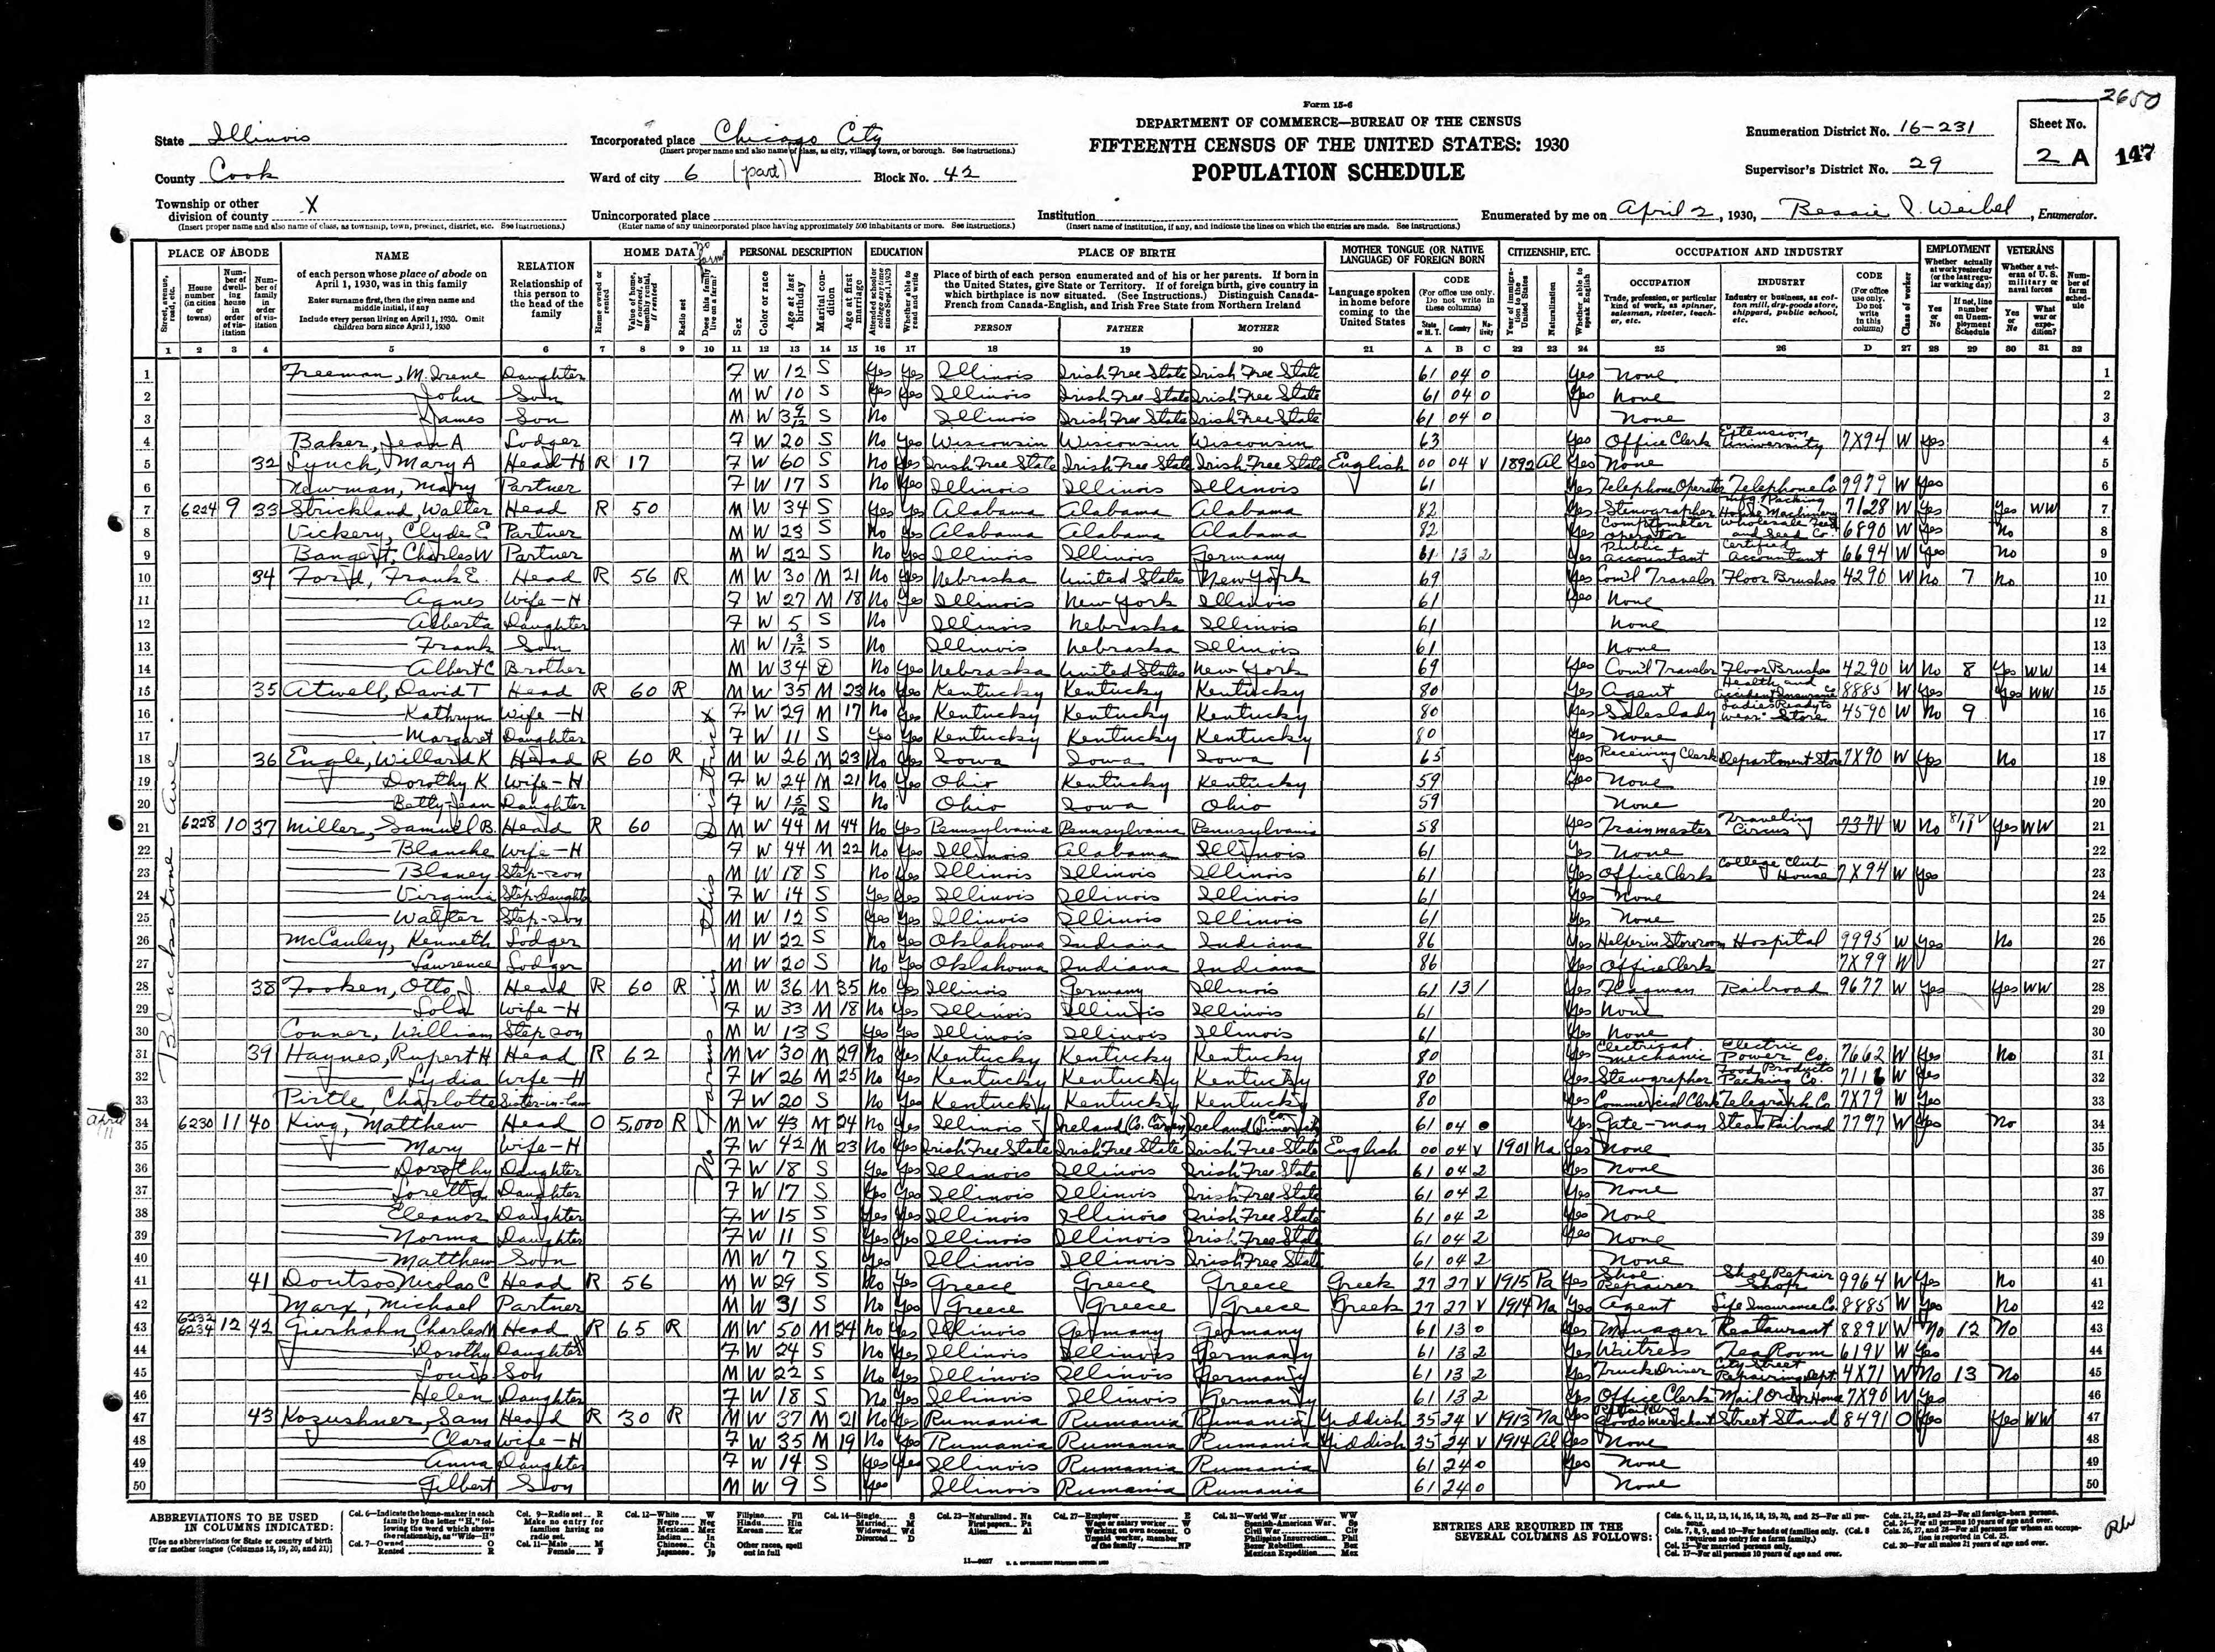 2650
Form 15-6
DEPARTMENT OF COMMERCE—BUREAU OF THE CENSUS
FIFTEENTH CENSUS OF THE UNITED STATES: 1930
POPULATION SCHEDULE
State Illinois
Incorporated place Chicago City
(Insert proper name and also name of class, as city, village, town, or borough. See instructions.)
Enumeration District No. 16-231
Sheet No.
2 A
147
County Cook
Ward of city 6 (part) Block No. 42
Supervisor's District No. 29
Township or other division of county X
(Insert proper name and also name of class, as township, town, precinct, district, etc. See instructions.)
Unincorporated place
(Enter name of any unincorporated place having approximately 500 inhabitants or more. See instructions.)
Institution
(Insert name of institution, if any, and indicate the lines on which the entries are made. See instructions.)
Enumerated by me on April 2, 1930, Bessie P. Weibel, Enumerator.
PLACE OF ABODE NAME RELATION HOME DATA PERSONAL DESCRIPTION EDUCATION PLACE OF BIRTH MOTHER TONGUE (OR NATIVE LANGUAGE) OF FOREIGN BORN CITIZENSHIP, ETC. OCCUPATION AND INDUSTRY EMPLOYMENT VETERANS
1 2 3 4 5 6 7 8 9 10 11 12 13 14 15 16 17 18 19 20 21 A B C 22 23 24 25 26 D 27 28 29 30 31 32
Blackstone Ave.
No farms in this District
1 Freeman, M. Irene Daughter F W 12 S Yes Yes Illinois Irish Free State Irish Free State 61 04 0 Yes None 1
2 John Son M W 10 S Yes Yes Illinois Irish Free State Irish Free State 61 04 0 Yes None 2
3 James Son M W 3 9/12 S No Illinois Irish Free State Irish Free State 61 04 0 None 3
4 Baker, Jean A Lodger F W 20 S No Yes Wisconsin Wisconsin Wisconsin 63 Yes Office Clerk Extension University 7X94 W Yes 4
5 32 Lynch, Mary A Head-H R 17 F W 60 S No Yes Irish Free State Irish Free State Irish Free State English 00 04 V 1892 Al Yes None 5
6 Newman, Mary Partner F W 17 S No Yes Illinois Illinois Illinois 61 Yes Telephone Operator Telephone Co 9979 W Yes 6
7 6224 9 33 Strickland, Walter Head R 50 M W 34 S Yes Yes Alabama Alabama Alabama 82 Yes Stenographer Mfg. Packing House Machinery 7128 W Yes Yes WW 7
8 Vickery, Clyde E Partner M W 23 S No Yes Alabama Alabama Alabama 82 Yes Comptometer operator Wholesale Feed and Seed Co. 6890 W Yes No 8
9 Bangert, Charles W Partner M W 22 S No Yes Illinois Illinois Germany 61 13 2 Yes Public accountant Certified Accountant 6694 W Yes No 9
10 34 Ford, Frank E. Head R 56 R M W 30 M 21 No Yes Nebraska United States New York 69 Yes Com'l Traveler Floor Brushes 4290 W No 7 No 10
11 Agnes Wife-H F W 27 M 18 No Yes Illinois New York Illinois 61 Yes None 11
12 Alberta Daughter F W 5 S No Illinois Nebraska Illinois 61 None 12
13 Frank Son M W 1 3/12 S No Illinois Nebraska Illinois 61 None 13
14 Albert C Brother M W 34 D No Yes Nebraska United States New York 69 Yes Com'l Traveler Floor Brushes 4290 W No 8 Yes WW 14
15 35 Atwell, David T Head R 60 R M W 35 M 23 No Yes Kentucky Kentucky Kentucky 80 Yes Agent Health and Accident Insurance Co 8885 W Yes Yes WW 15
16 Kathryn Wife-H F W 29 M 17 No Yes Kentucky Kentucky Kentucky 80 Yes Saleslady Ladies Ready to wear Store 4590 W No 9 16
17 Margaret Daughter F W 11 S Yes Yes Kentucky Kentucky Kentucky 80 Yes None 17
18 36 Engle, Willard K Head R 60 R M W 26 M 23 No Yes Iowa Iowa Iowa 65 Yes Receiving Clerk Department Store 7X90 W Yes No 18
19 Dorothy K Wife-H F W 24 M 21 No Yes Ohio Kentucky Kentucky 59 Yes None 19
20 Betty Jean Daughter F W 1 5/12 S No Ohio Iowa Ohio 59 None 20
21 6228 10 37 Miller, Samuel B. Head R 60 M W 44 M 44 No Yes Pennsylvania Pennsylvania Pennsylvania 58 Yes Trainmaster Traveling Circus 737V W No Yes WW 21
22 Blanche Wife-H F W 44 M 22 No Yes Illinois Alabama Illinois 61 Yes None 22
23 Blaney Step-son M W 18 S No Yes Illinois Illinois Illinois 61 Yes Office Clerk College Club House 7X94 W Yes 23
24 Virginia Step-Daughter F W 14 S Yes Yes Illinois Illinois Illinois 61 Yes None 24
25 Walter Step-son M W 12 S Yes Yes Illinois Illinois Illinois 61 Yes None 25
26 McCauley, Kenneth Lodger M W 22 S No Yes Oklahoma Indiana Indiana 86 Yes Helper in Storeroom Hospital 9995 W Yes No 26
27 Lawrence Lodger M W 20 S No Yes Oklahoma Indiana Indiana 86 Yes Office Clerk 7X99 W 27
28 38 Fooken, Otto J. Head R 60 R M W 36 M 35 No Yes Illinois Germany Illinois 61 13 1 Yes Flagman Railroad 9677 W Yes Yes WW 28
29 Lola Wife-H F W 33 M 18 No Yes Illinois Illinois Illinois 61 Yes None 29
30 Conner, William Step son M W 13 S Yes Yes Illinois Illinois Illinois 61 Yes None 30
31 39 Haynes, Rupert H Head R 62 M W 30 M 29 No Yes Kentucky Kentucky Kentucky 80 Yes Electrical mechanic Electric Power Co. 7662 W Yes No 31
32 Lydia Wife-H F W 26 M 25 No Yes Kentucky Kentucky Kentucky 80 Yes Stenographer Food Products Packing Co. 7116 W Yes 32
33 Pirtle, Charlotte Sister-in-law F W 20 S No Yes Kentucky Kentucky Kentucky 80 Yes Commercial Clerk Telegraph Co 7X79 W Yes 33
April 11
34 6230 11 40 King, Matthew Head O 5,000 R M W 43 M 24 No Yes Illinois Ireland Ireland 61 04 0 Yes Gate-man Steam Railroad 7797 W Yes No 34
35 Mary Wife-H F W 42 M 23 No Yes Irish Free State Irish Free State Irish Free State English 00 04 V 1901 Na Yes None 35
36 Dorothy Daughter F W 18 S Yes Yes Illinois Illinois Irish Free State 61 04 2 Yes None 36
37 Loretta Daughter F W 17 S Yes Yes Illinois Illinois Irish Free State 61 04 2 Yes None 37
38 Eleanor Daughter F W 15 S Yes Yes Illinois Illinois Irish Free State 61 04 2 Yes None 38
39 Norma Daughter F W 11 S Yes Yes Illinois Illinois Irish Free State 61 04 2 Yes None 39
40 Matthew Son M W 7 S Yes Illinois Illinois Irish Free State 61 04 2 None 40
41 41 Doutsos, Nicolas C Head R 56 M W 29 S No Yes Greece Greece Greece Greek 27 27 V 1915 Pa Yes Shoe Repairer Shoe Repair Shop 9964 W Yes No 41
42 Marx, Michael Partner M W 31 S No Yes Greece Greece Greece Greek 27 27 V 1914 Na Yes Agent Life Insurance Co. 8885 W Yes No 42
43 6232 6234 12 42 Gierhahn, Charles M Head R 65 R M W 50 M 24 No Yes Illinois Germany Germany 61 13 0 Yes Manager Restaurant 889V W No 12 No 43
44 Dorothy Daughter F W 24 S No Yes Illinois Illinois Germany 61 13 2 Yes Waitress Tea Room 619V W Yes 44
45 Louis Son M W 22 S No Yes Illinois Illinois Germany 61 13 2 Yes Truck Driver City Street Repairing Dept. 4X71 W No 13 No 45
46 Helen Daughter F W 18 S No Yes Illinois Illinois Germany 61 13 2 Yes Office Clerk Mail Order House 7X90 W Yes 46
47 43 Kozushner, Sam Head R 30 R M W 37 M 21 No Yes Rumania Rumania Rumania Yiddish 35 24 V 1913 Na Yes Goods merchant Street Stand 8491 O Yes Yes WW 47
48 Clara Wife-H F W 35 M 19 No Yes Rumania Rumania Rumania Yiddish 35 24 V 1914 Al Yes None 48
49 Anna Daughter F W 14 S Yes Yes Illinois Rumania Rumania 61 24 0 Yes None 49
50 Gilbert Son M W 9 S Yes Illinois Rumania Rumania 61 24 0 None 50
ABBREVIATIONS TO BE USED IN COLUMNS INDICATED:
[Use no abbreviations for State or country of birth or for mother tongue (Columns 18, 19, 20, and 21)]
ENTRIES ARE REQUIRED IN THE SEVERAL COLUMNS AS FOLLOWS: